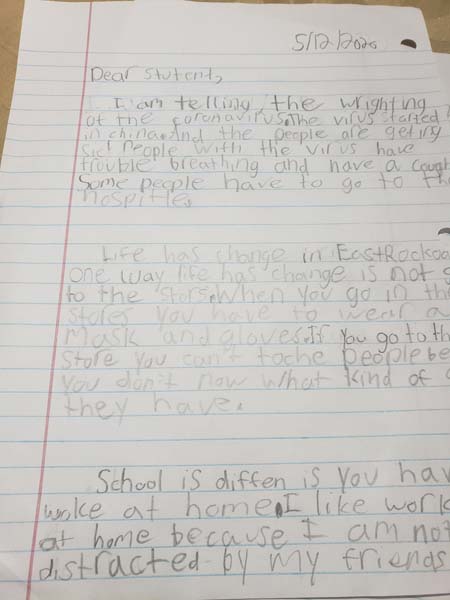 5/12/2020
Dear Stutent,
I am telling the wrighting
of the coronavirus. The virus started
in china. And the people are geting
sict People with the virus have
trouble breathing and have a cough
Some people have to go to the
hospittle.
Life has change in EastRocka
one way life has change is not g
to the stors. When you go in the
stores you have to wear a
mask and gloves. If you go to th
store you can't toche people be
you don't now what kind of
they have.
School is diffen is you hav
woke at home. I like work
at home because I am not
distracted by my friends